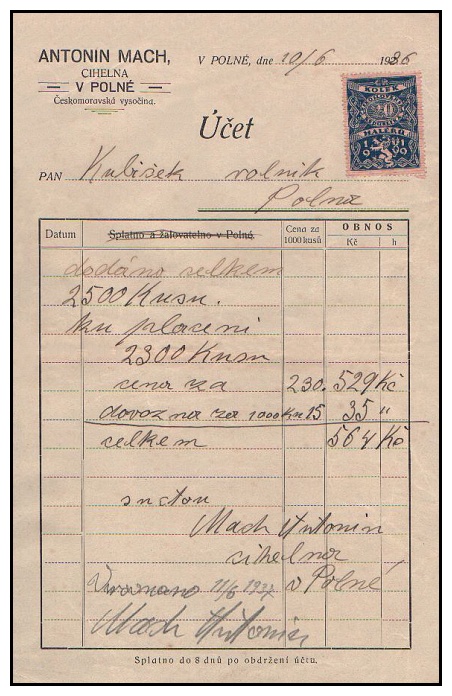 ANTONIN MACH,
CIHELNA
V POLNÉ
Českomoravská vysočina.
V POLNÉ, dne 10/6 1936
KOLEK
HALÉŘŮ
1919
Účet
PAN Kubišek rolnik
Polna
Datum Splatno a žalovatelno v Polné. Cena za 1000 kusů OBNOS Kč h
dodáno celkem
2500 Kusu.
ku placeni
2300 Kusu
cena za 230. 529 Kč
dovoz na za 1000 Ku 15 35 "
celkem 564 Kč
s uctou
Mach Antonin
cihelna
v Polné
11/6 1937
Mach Antonin
Splatno do 8 dnů po obdržení účtu.